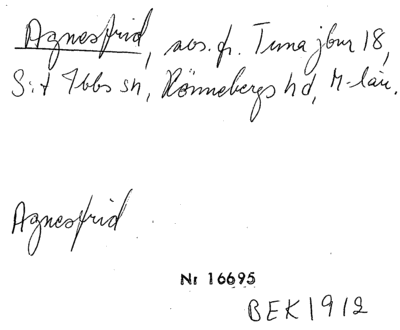 Agnesfrid, avs. fr. Tuna jbur 18,
S:t Ibbs sn, Rönnebergs hd, M-län.
Agnesfrid
Nr 16695
BEK 1912